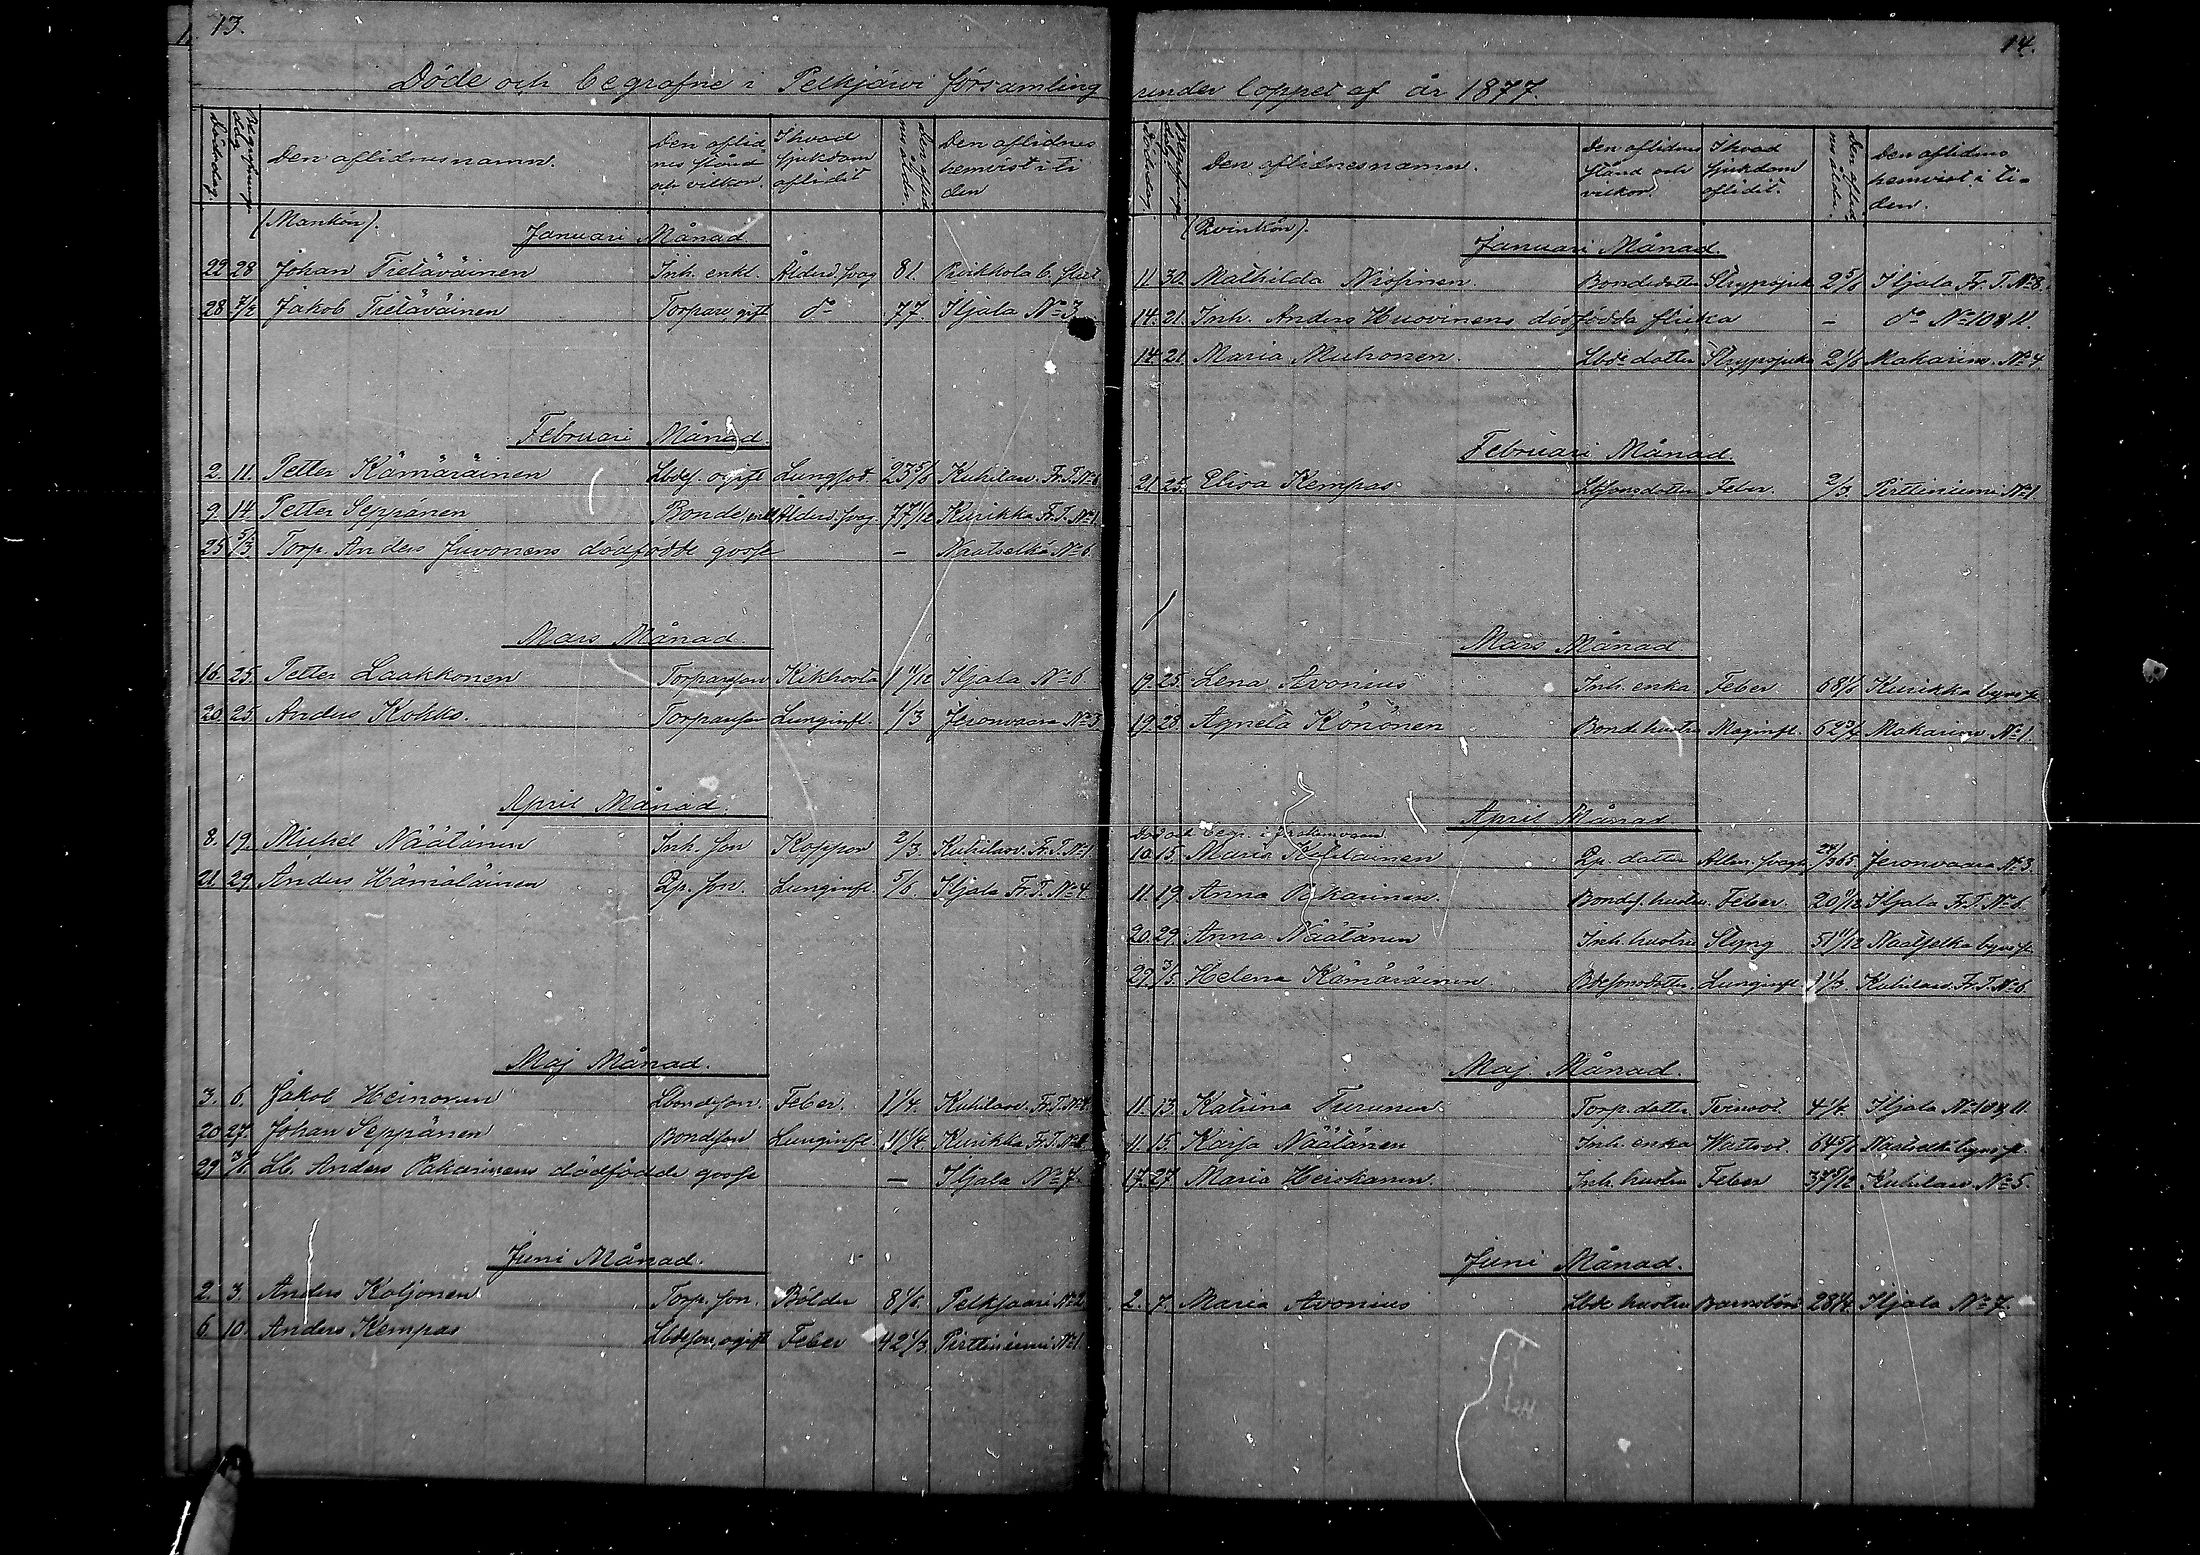 13.
Döde och begrafne i Pelkjärvi församling
Dödsdag. Begrafningsdag Den aflidnes namn. Den aflidnes stånd och vilkor. I hvad sjukdom afliden Den aflidnes ålder. Den aflidnes hemvist i tiden
(Mankön).
Januari Månad
22 28 Johan Tieläväinen Inh. enkl. Ålderd. svag 81. b.
28 7/2 Jakob Tieläväinen Torpare, gift do 77. Iljala No 3
Februari Månad
2. 11. Petter Kämäräinen Lbdes. ogift Lungsot. 23 5/6 Kuhilav. Fr. T. No 6
9. 14 Petter Seppänen Bonde, enkl Ålderd. svag 77 1/12 Kurikka Fr. T. No 1.
25 5/3 Torp. Anders Juvonens dödfödde gosse — Naatselkä No 6.
Mars Månad.
16. 25. Petter Laakkonen Torpareson Kikhosta 1 11/12 Iljala No 6
20. 25. Anders Kokko. Torpareson Lunginfl. 1/3 Jeronvaara No 3.
April Månad.
8. 19. Mickel Näätänen Inh. son Koppor 2/3 Kuhilav. Fr. T. No 1
21 29. Anders Hämäläinen Lp. son. Lunginfl. 5/6. Iljala Fr. T. No 4
Maj Månad.
3. 6. Jakob Heinonen Lbondeson. Feber. 1 1/4. Kuhilav. Fr. T.
20 27. Johan Seppänen Bondeson Lunginfl. 11 1/4. Kurikka Fr. T. No 1
29 3/6 Lb. Anders Pakarinens dödfödde gosse — Iljala No 7.
Juni Månad.
2. 3. Anders Koljonen Torp. son. Bölder 8 1/6. Pelkjärvi No 2
6. 10. Anders Kempas Lbdeson, ogift Feber 42 1/3. Perttiniemi No 1.
14.
under loppet af år 1877.
Dödsdag. Begrafningsdag Den aflidnes namn. Den aflidnes stånd och vilkor. I hvad sjukdom aflidit. Den aflidnes ålder. Den aflidnes hemvist i tiden.
(Qvinkön).
Januari Månad.
11. 30. Mathilda Nissinen Bondedotter Strypsjuk 2 5/6 Iljala Fr. T. No 8.
14. 21. Inh. Anders Huovinens dödfödda flicka — do No 10 & 11.
14 21 Maria Muhonen. Lbde dotter Strypsjuka 2 1/6 Makariev. No 4.
Februari Månad
21. 25. Elisa Kempas Lbsonsdotter Feber. 2/3. Perttiniemi No 1.
Mars Månad
19. 25. Lena Avonius Inh. enka Feber 68 1/6 Kurikka
19. 28. Agneta Könönen Bond. hustru Maginfl. 62 3/4 Makariev. No 1.
April Månad
Död och begr. i
10. 15. Maria Lp. dotter Ålder. svagh 24/365 Jeronvaara No 3.
11. 19. Anna Pakarinen. Bondes. hustru. Feber. 20 1/12 Iljala Fr. T. No 6.
20. 29. Anna Näätänen Inh. hustru Styng 51 11/12 Naatselkä
29. 3/5. Helena Kämäräinen Bdesonsdotter. Lunginfl. 1 1/3. Kuhilav. Fr. T. No 6.
Maj Månad.
11. 13. Katrina Turunen Torp. dotter 4 1/4 Iljala No 10 & 11.
11. 15. Kaisa Näätänen Inh. enka Wattsot. 64 5/6 Naatselkä
17. 27 Maria Heiskanen. Inh. hustru Feber 37 5/12 Kuhilav. No 5.
Juni Månad.
2. 7. Maria Avonius Lbde hustru Barnsbörd 28 1/4 Iljala No 7.